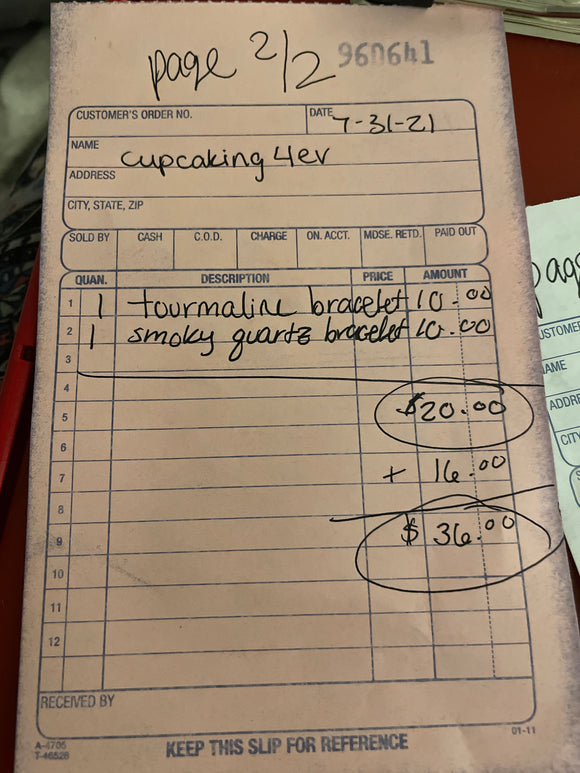 page 2/2 960641
CUSTOMER'S ORDER NO. DATE 7-31-21
NAME cupcaking 4ev
ADDRESS
CITY, STATE, ZIP
SOLD BY CASH C.O.D. CHARGE ON. ACCT. MDSE. RETD. PAID OUT
QUAN. DESCRIPTION PRICE AMOUNT
1 1 tourmaline bracelet 10.00
2 1 smoky quartz bracelet 10.00
3
4
5 $20.00
6
7 + 16.00
8
9 $ 36.00
10
11
12
RECEIVED BY
A-4705
T-46528
KEEP THIS SLIP FOR REFERENCE
01-11
pag
USTOME
AME
ADDRE
CITY